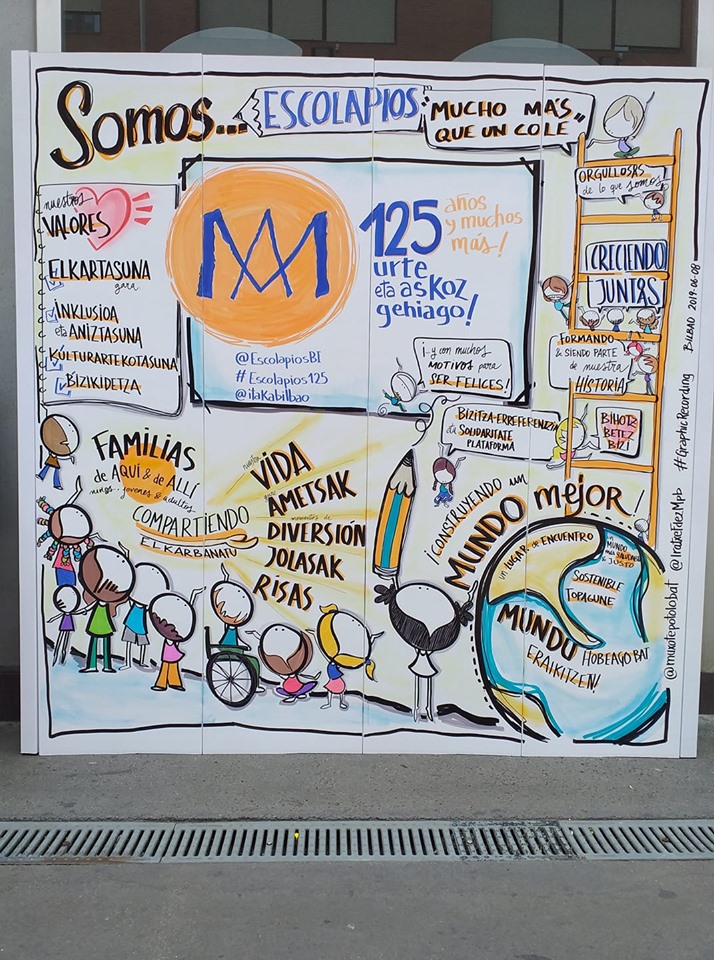 Somos...
ESCOLAPIOS
"MUCHO MÁS
QUE UN COLE"
nuestros
VALORES
ELKARTASUNA
gara
INKLUSIOA
eta ANIZTASUNA
KULTURARTEKOTASUNA
BIZIKIDETZA
125
años
y muchos
más!
urte
eta askoz
gehiago!
@EscolapiosBI
# Escolapios125
@itakabilbao
¡...y con muchos
MOTIVOS para
SER FELICES!
ORGULLOSAS
de lo que somos
CRECIENDO
JUNTAS
FORMANDO
& SIENDO PARTE
de nuestra
HISTORIA
BIHOTZ
BETEZ
BIZI
BIZITZA-ERREFERENTZIA
eta SOLIDARITATE
PLATAFORMA
FAMILIAS
de AQUÍ & de ALLÍ
niños - jóvenes & adultos
COMPARTIENDO
ELKARBANATU
nuestra
VIDA
gure
AMETSAK
momentos de
DIVERSIÓN
JOLASAK
RISAS
¡CONSTRUYENDO un
MUNDO mejor!
un LUGAR de ENCUENTRO
un
MUNDO
más SALUDABLE
& JUSTO
SOSTENIBLE
TOPAGUNE
MUNDU
HOBEAGO BAT
ERAIKITZEN!
@muxotepotolobat
@IratxeFdezMpb
#GraphicRecording
BILBAO 2019-06-08